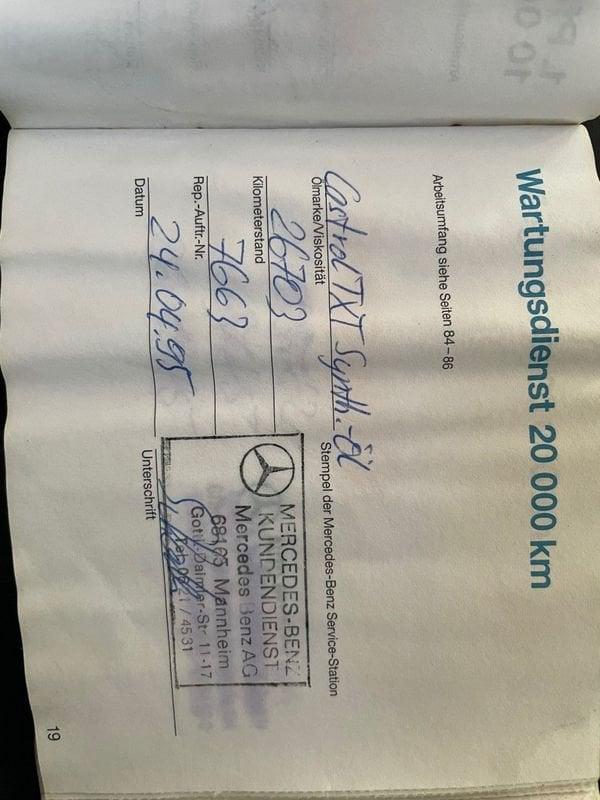 Wartungsdienst 20 000 km
Arbeitsumfang siehe Seiten 84–86
Castrol TXT Synth.-Öl
Ölmarke/Viskosität
26703
Kilometerstand
7663
Rep.-Auftr.-Nr.
24.04.95
Datum
Stempel der Mercedes-Benz Service-Station
MERCEDES-BENZ
KUNDENDIENST
Mercedes Benz AG
Mannheim
Str 11-17
/ 45 31
Unterschrift
19